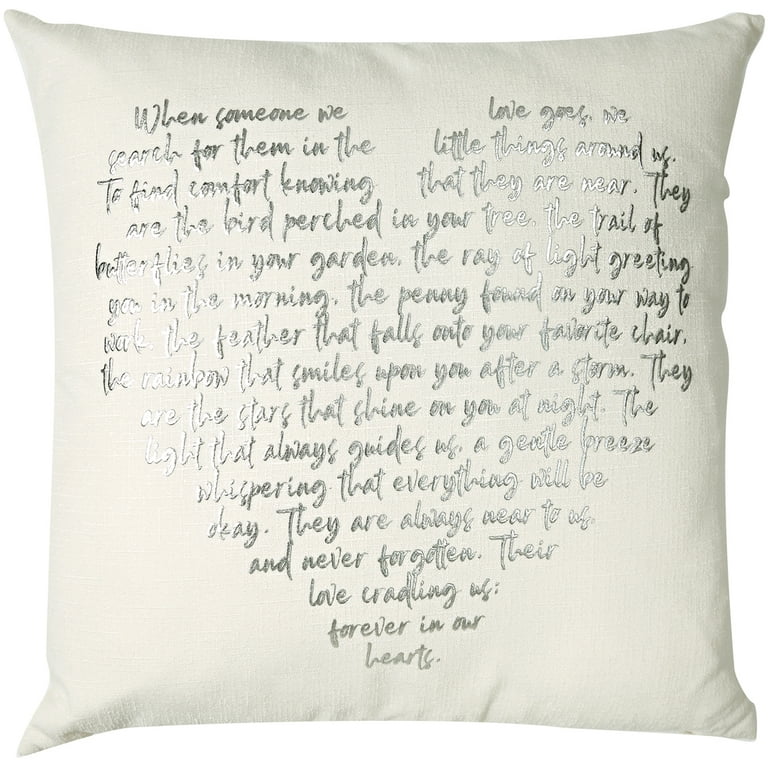 When someone we love goes, we
search for them in the little things around us.
To find comfort knowing that they are near. They
are the bird perched in your tree, the trail of
butterflies in your garden, the ray of light greeting
you in the morning, the penny found on your way to
work, the feather that falls onto your favorite chair,
the rainbow that smiles upon you after a storm. They
are the stars that shine on you at night. The
light that always guides us, a gentle breeze
whispering that everything will be
okay. They are always near to us,
and never forgotten. Their
love cradling us;
forever in our
hearts.